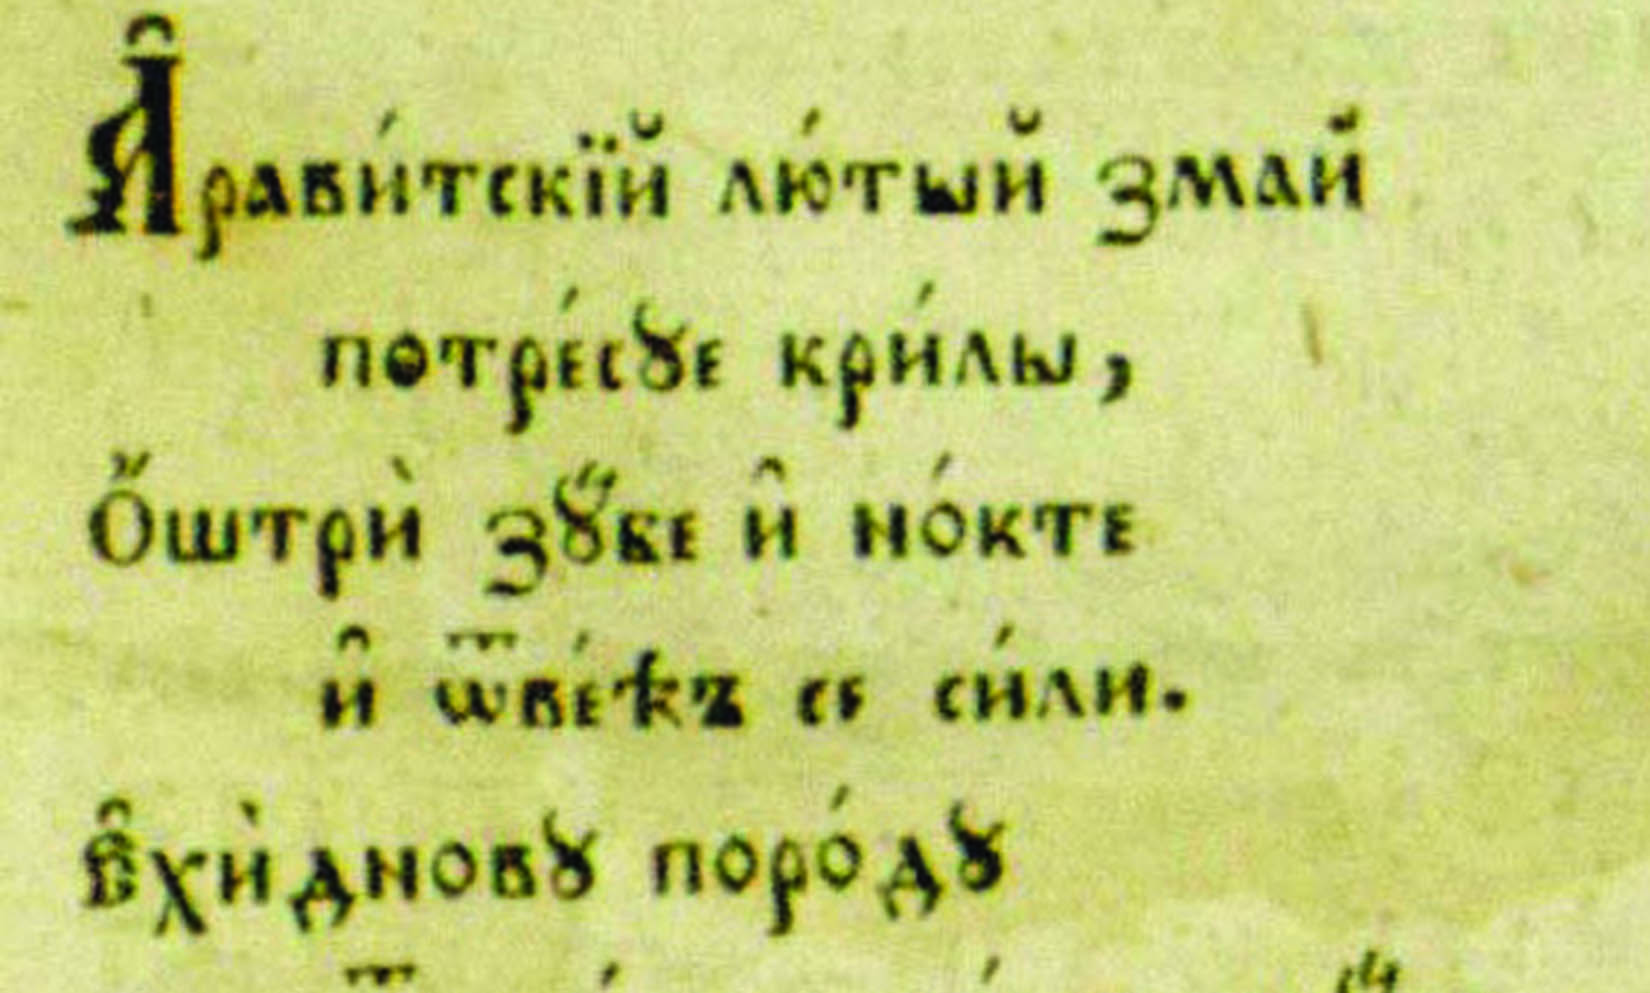 А̑рави́тскїй лю́тый змай
потре́сꙋе кри́лы,
О̋штрѝ зꙋ̋бе и̑ но́кте
и̑ ѿве́къ се си́ли.
Е̑хѝднову поро́дꙋ